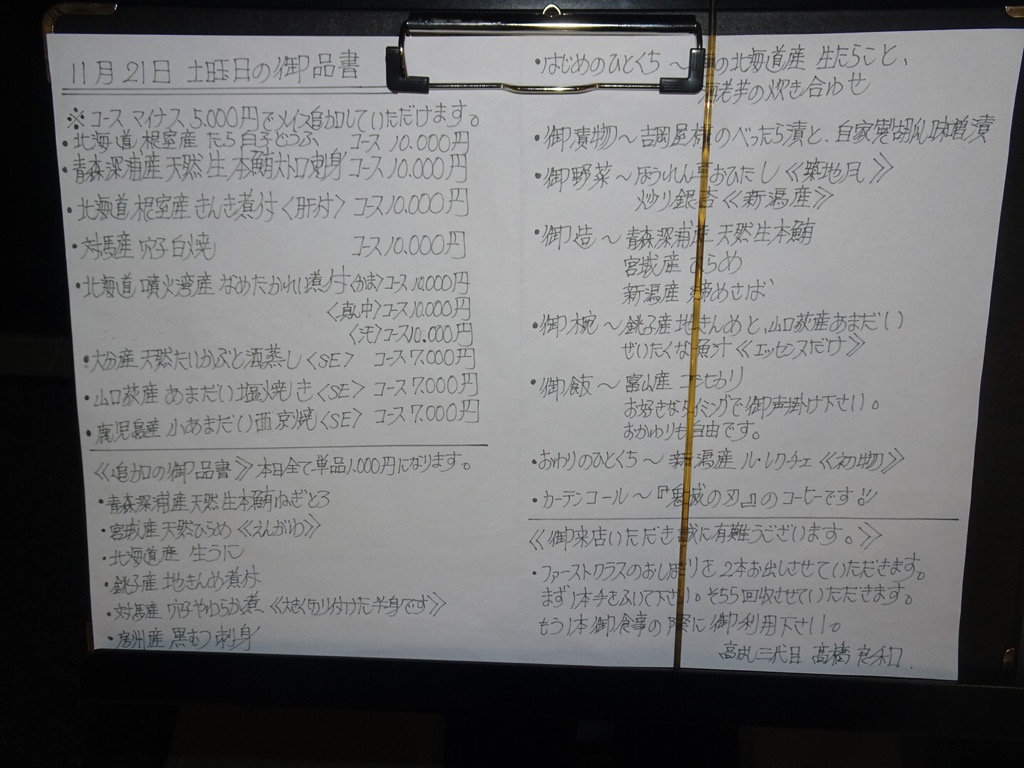 11月21日 土曜日の御品書
※コース マイナス 5.000円でメイン追加していただけます。
・北海道 根室産 たら白子どうふ コース 10.000円
・青森深浦産 天然 生 本鮪大トロ刺身 コース 10.000円
・北海道 根室産 きんき煮付〈肝付〉コース10.000円
・対馬産 穴子白焼 コース10.000円
・北海道 噴火湾産 なめたかれい煮付〈かま〉コース 10.000円
〈真ん中〉コース10.000円
コース10.000円
・大分産 天然たいかぶと酒蒸し〈SE〉 コース 7.000円
・山口萩産 あまだい塩焼き〈SE〉 コース 7.000円
・鹿児島産 小あまだい西京焼〈SE〉 コース 7.000円
《追加の御品書》本日全て単品1.000円になります。
・青森深浦産 天然 生 本鮪ねぎとろ
・宮城産 天然ひらめ《えんがわ》
・北海道産 生うに
・銚子産 地きんめ煮付
・対馬産 穴子やわらか煮《大きく切り付けた半身です》
・房州産 黒むつ刺身
・はじめのひとくち〜 の北海道産 生たらこと、
海老芋の炊き合せ
・御漬物〜吉岡屋様のべったら漬と、自家製胡瓜味噌漬
・御野菜〜ほうれん草おひたし《築地風》
炒り銀杏《新潟産》
・御造〜青森深浦産 天然生本鮪
宮城産 ひらめ
新潟産 締めさば
・御椀〜 銚子産 地きんめと、山口萩産あまだい
ぜいたくな魚汁《エッセンスだけ》
・御飯〜 富山産 コシヒカリ
お好きなタイミングで御声掛け下さい。
おかわりも自由です。
・おわりのひとくち〜 新潟産 ル・レクチェ《初物》
・カーテンコール〜『鬼滅の刃』のコーヒーです!!
《御来店いただき誠に有難うございます。》
・ファーストクラスのおしぼりを 2本お出しさせていただきます。
まず1本手をふいて下さい。そちら回収させていただきます。
もう1本御食事の際に御利用下さい。
高はし三代目 高橋